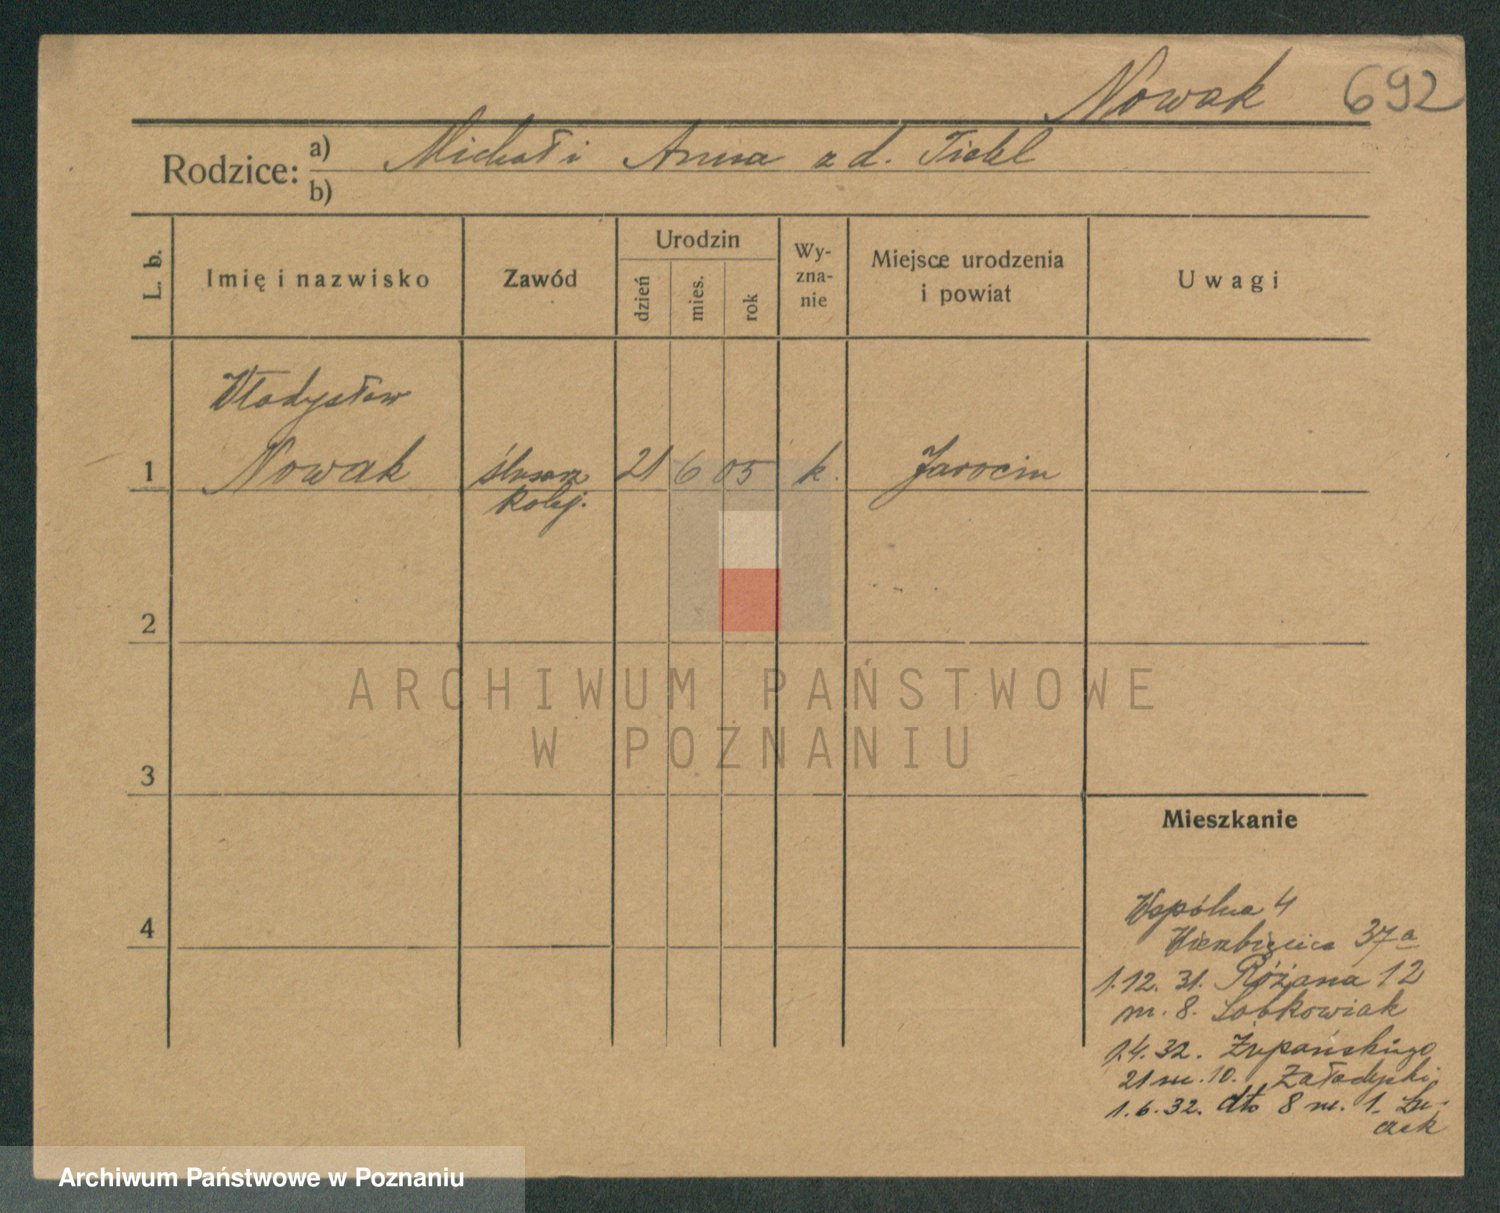 Nowak 692
Rodzice: a) Michał i Anna z d. Tickl
b)
L. b.
Imię i nazwisko
Zawód
Urodzin
dzień
mies.
rok
Wy-
zna-
nie
Miejsce urodzenia
i powiat
Uwagi
Władysław
1 Nowak ślusarz 21 6 05 k. Jarocin
kolej.
2
ARCHIWUM PAŃSTWOWE
W POZNANIU
3
Mieszkanie
4
Wspólna 4
Wierzbięcice 37a
1.12. 31. Różana 12
m. 8. Sobkowiak
1.4.32. Żupańskiego
21 m. 10.
1.6.32. dto 8 m. 1.
Archiwum Państwowe w Poznaniu